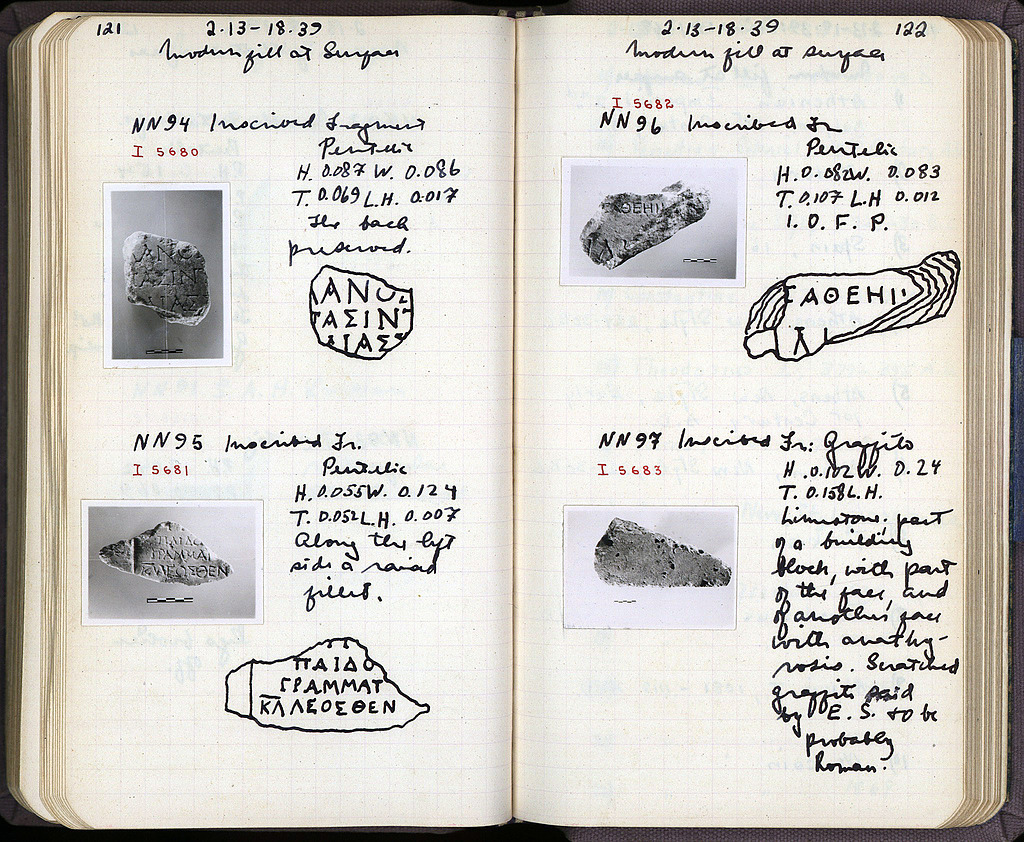 121 2.13-18.39
Modern fill at Surface
NN94 Inscribed Fragment
I 5680
Pentelic
H. 0.087 W. 0.086
T. 0.069 L.H. 0.017
The back
preserved.
ΑΝΟ
ΑΣΙΝ
ΙΑΣ
ΑΝΟ
ΑΣΙΝ
ΙΑΣ
NN95 Inscribed Fr.
I 5681
Pentelic
H. 0.055 W. 0.124
T. 0.052 L.H. 0.007
Along the left
side a raised
fillet.
ΠΑΙΔΟ
ΓΡΑΜΜΑΤ
ΚΛΕΟΣΘΕΝ
ΠΑΙΔΟ
ΓΡΑΜΜΑΤ
ΚΛΛΕΟΣΘΕΝ
2.13-18.39 122
Modern fill at surface
I 5682
NN96 Inscribed Fr
Pentelic
H. 0.082 W. 0.083
T. 0.107 L.H 0.012
I. O. F. P.
ΑΘΕΗΙ
ΑΘΕΗΙ
NN97 Inscribed Fr: Graffito
I 5683
H. 0.102 W. 0.24
T. 0.158 L.H.
Limestone. part
of a building
block, with part
of the face, and
of another face
with anathy-
rosis. Scratched
graffito said
by E. S. to be
probably
Roman.